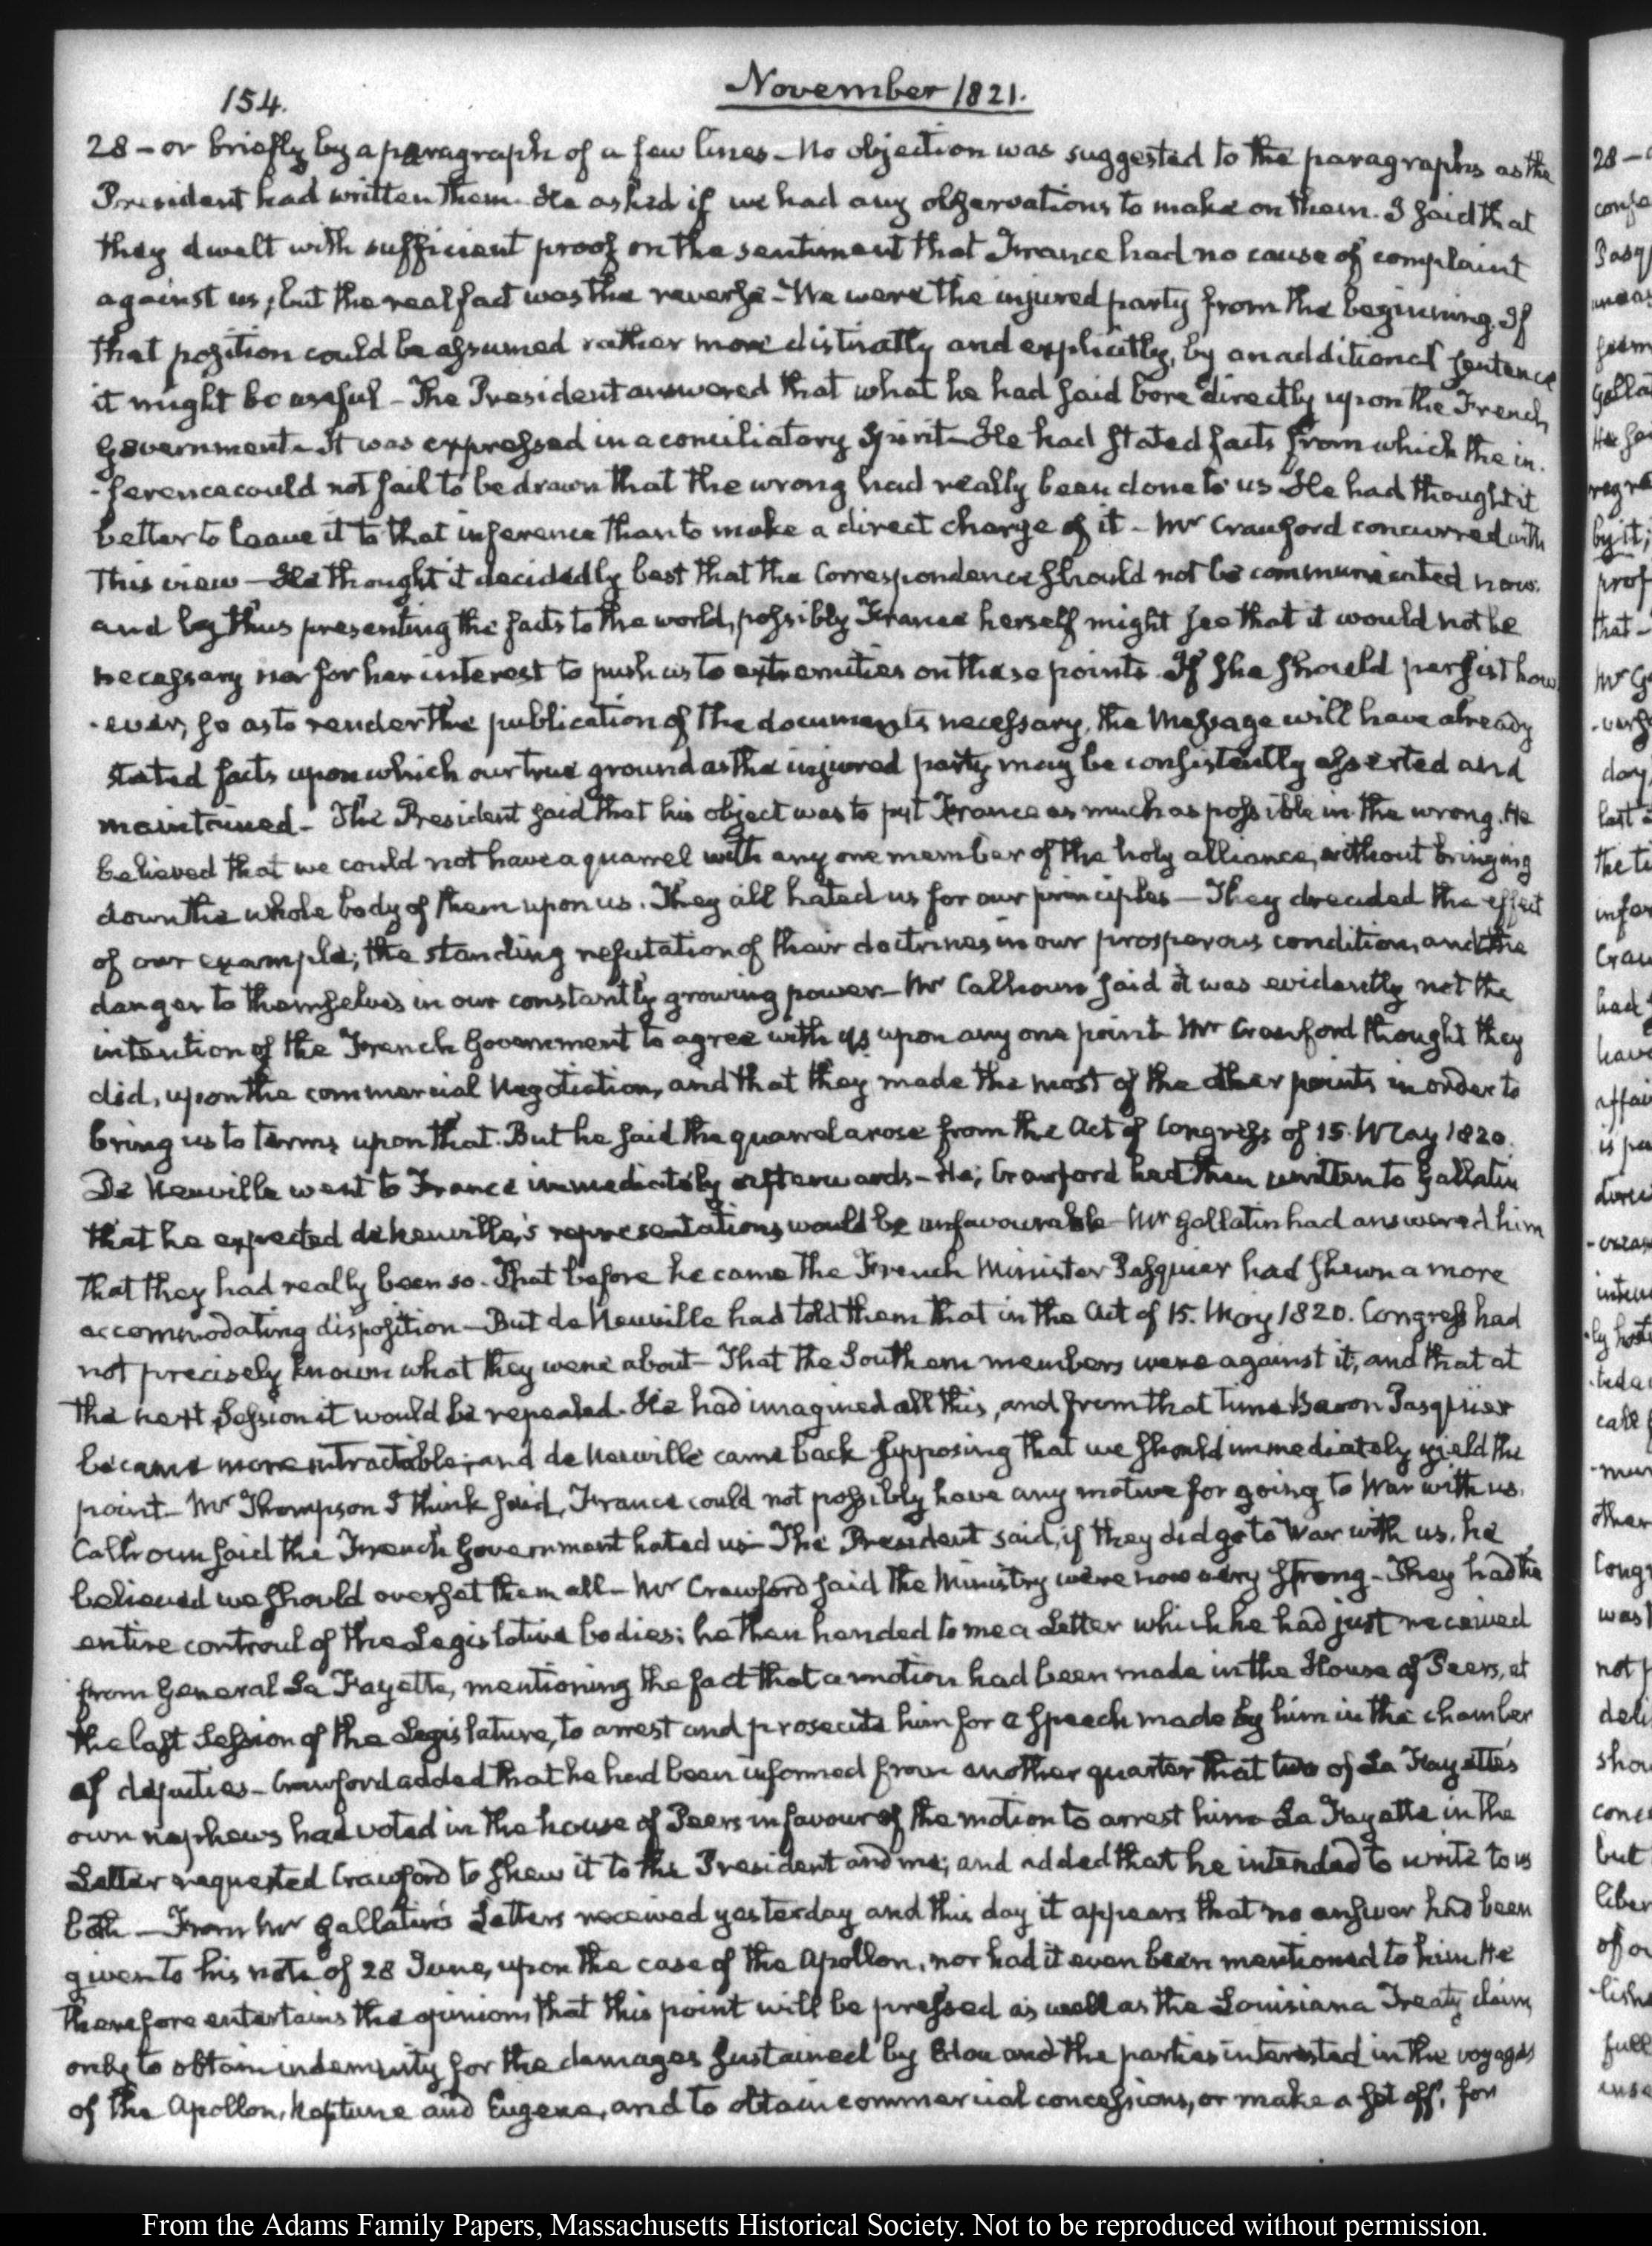 154.
November 1821.
28 – or briefly by a paragraph of a few lines – No objection was suggested to the paragraphs as the
President had written them. He asked if we had any observations to make on them. I said that
they dwelt with sufficient proof on the sentiment that France had no cause of complaint
against us; but the real fact was the reverse – We were the injured party from the beginning. If
that position could be assumed rather more distinctly and explicitly, by an additional sentence
it might be useful – The President answered that what he had said bore directly upon the French
Government – It was expressed in a conciliatory Spirit – He had stated facts from which the in-
-ference could not fail to be drawn that the wrong had really been done to us – He had thought it
better to leave it to that inference than to make a direct charge of it – Mr Crawford concurred with
this view – He thought it decidedly best that the Correspondence should not be communicated now.
and by thus presenting the facts to the world, possibly France herself might see that it would not be
necessary nor for her interest to push us to extremities on these points. If she should persist how
-ever, so as to render the publication of the documents necessary, the Message will have already
stated facts upon which our true ground as the injured party may be consistently asserted and
maintained – The President said that his object was to put France as much as possible in the wrong. He
believed that we could not have a quarrel with any one member of the holy alliance, without bringing
down the whole body of them upon us. They all hated us for our principles – They dreaded the effect
of our example; the standing refutation of their doctrines in our prosperous condition, and the
danger to themselves in our constantly growing power – Mr Calhoun said it was evidently not the
intention of the French Government to agree with us upon any one point – Mr Crawford thought they
did, upon the commercial Negotiation, and that they made the most of the other points in order to
bring us to terms upon that. But he said the quarrel arose from the Act of Congress of 15. May 1820.
De Neuville went to France immediately afterwards – He; Crawford had then written to Gallatin
that he expected de Neuville's representations would be unfavourable – Mr Gallatin had answered him
that they had really been so. That before he came the French Minister Pasquier had shewn a more
accommodating disposition – But de Neuville had told them that in the Act of 15. May 1820. Congress had
not precisely known what they were about – That the Southern members were against it, and that at
the next Session it would be repealed. He had imagined all this, and from that time Baron Pasquier
became more intractable; and de Neuville came back supposing that we should immediately yield the
point – Mr Thompson I think said, France could not possibly have any motive for going to War with us.
Calhoun said the French Government hated us – The President said, if they did go to War with us, he
believed we should overset them all – Mr Crawford said the Ministry were now very strong – They had the
entire controul of the Legislative bodies; he then handed to me a Letter which he had just received
from General La Fayette, mentioning the fact that a motion had been made in the House of Peers, at
the last Session of the Legislature, to arrest and prosecute him for a speech made by him in the chamber
of deputies – Crawford added that he had been informed from another quarter that two of La Fayette's
own nephews had voted in the house of Peers in favour of the motion to arrest him – La Fayette in the
Letter requested Crawford to shew it to the President and me; and added that he intended to write to us
both – From Mr Gallatin's Letters received yesterday and this day it appears that no answer had been
given to his note of 28 June, upon the case of the Apollon, nor had it even been mentioned to him. He
therefore entertains the opinion that this point will be pressed as well as the Louisiana Treaty claim,
only to obtain indemnity for the damages sustained by Edou and the parties interested in the voyages
of the Apollon, Neptune and Eugene, and to obtain commercial concessions, or make a set off, for
From the Adams Family Papers, Massachusetts Historical Society. Not to be reproduced without permission.